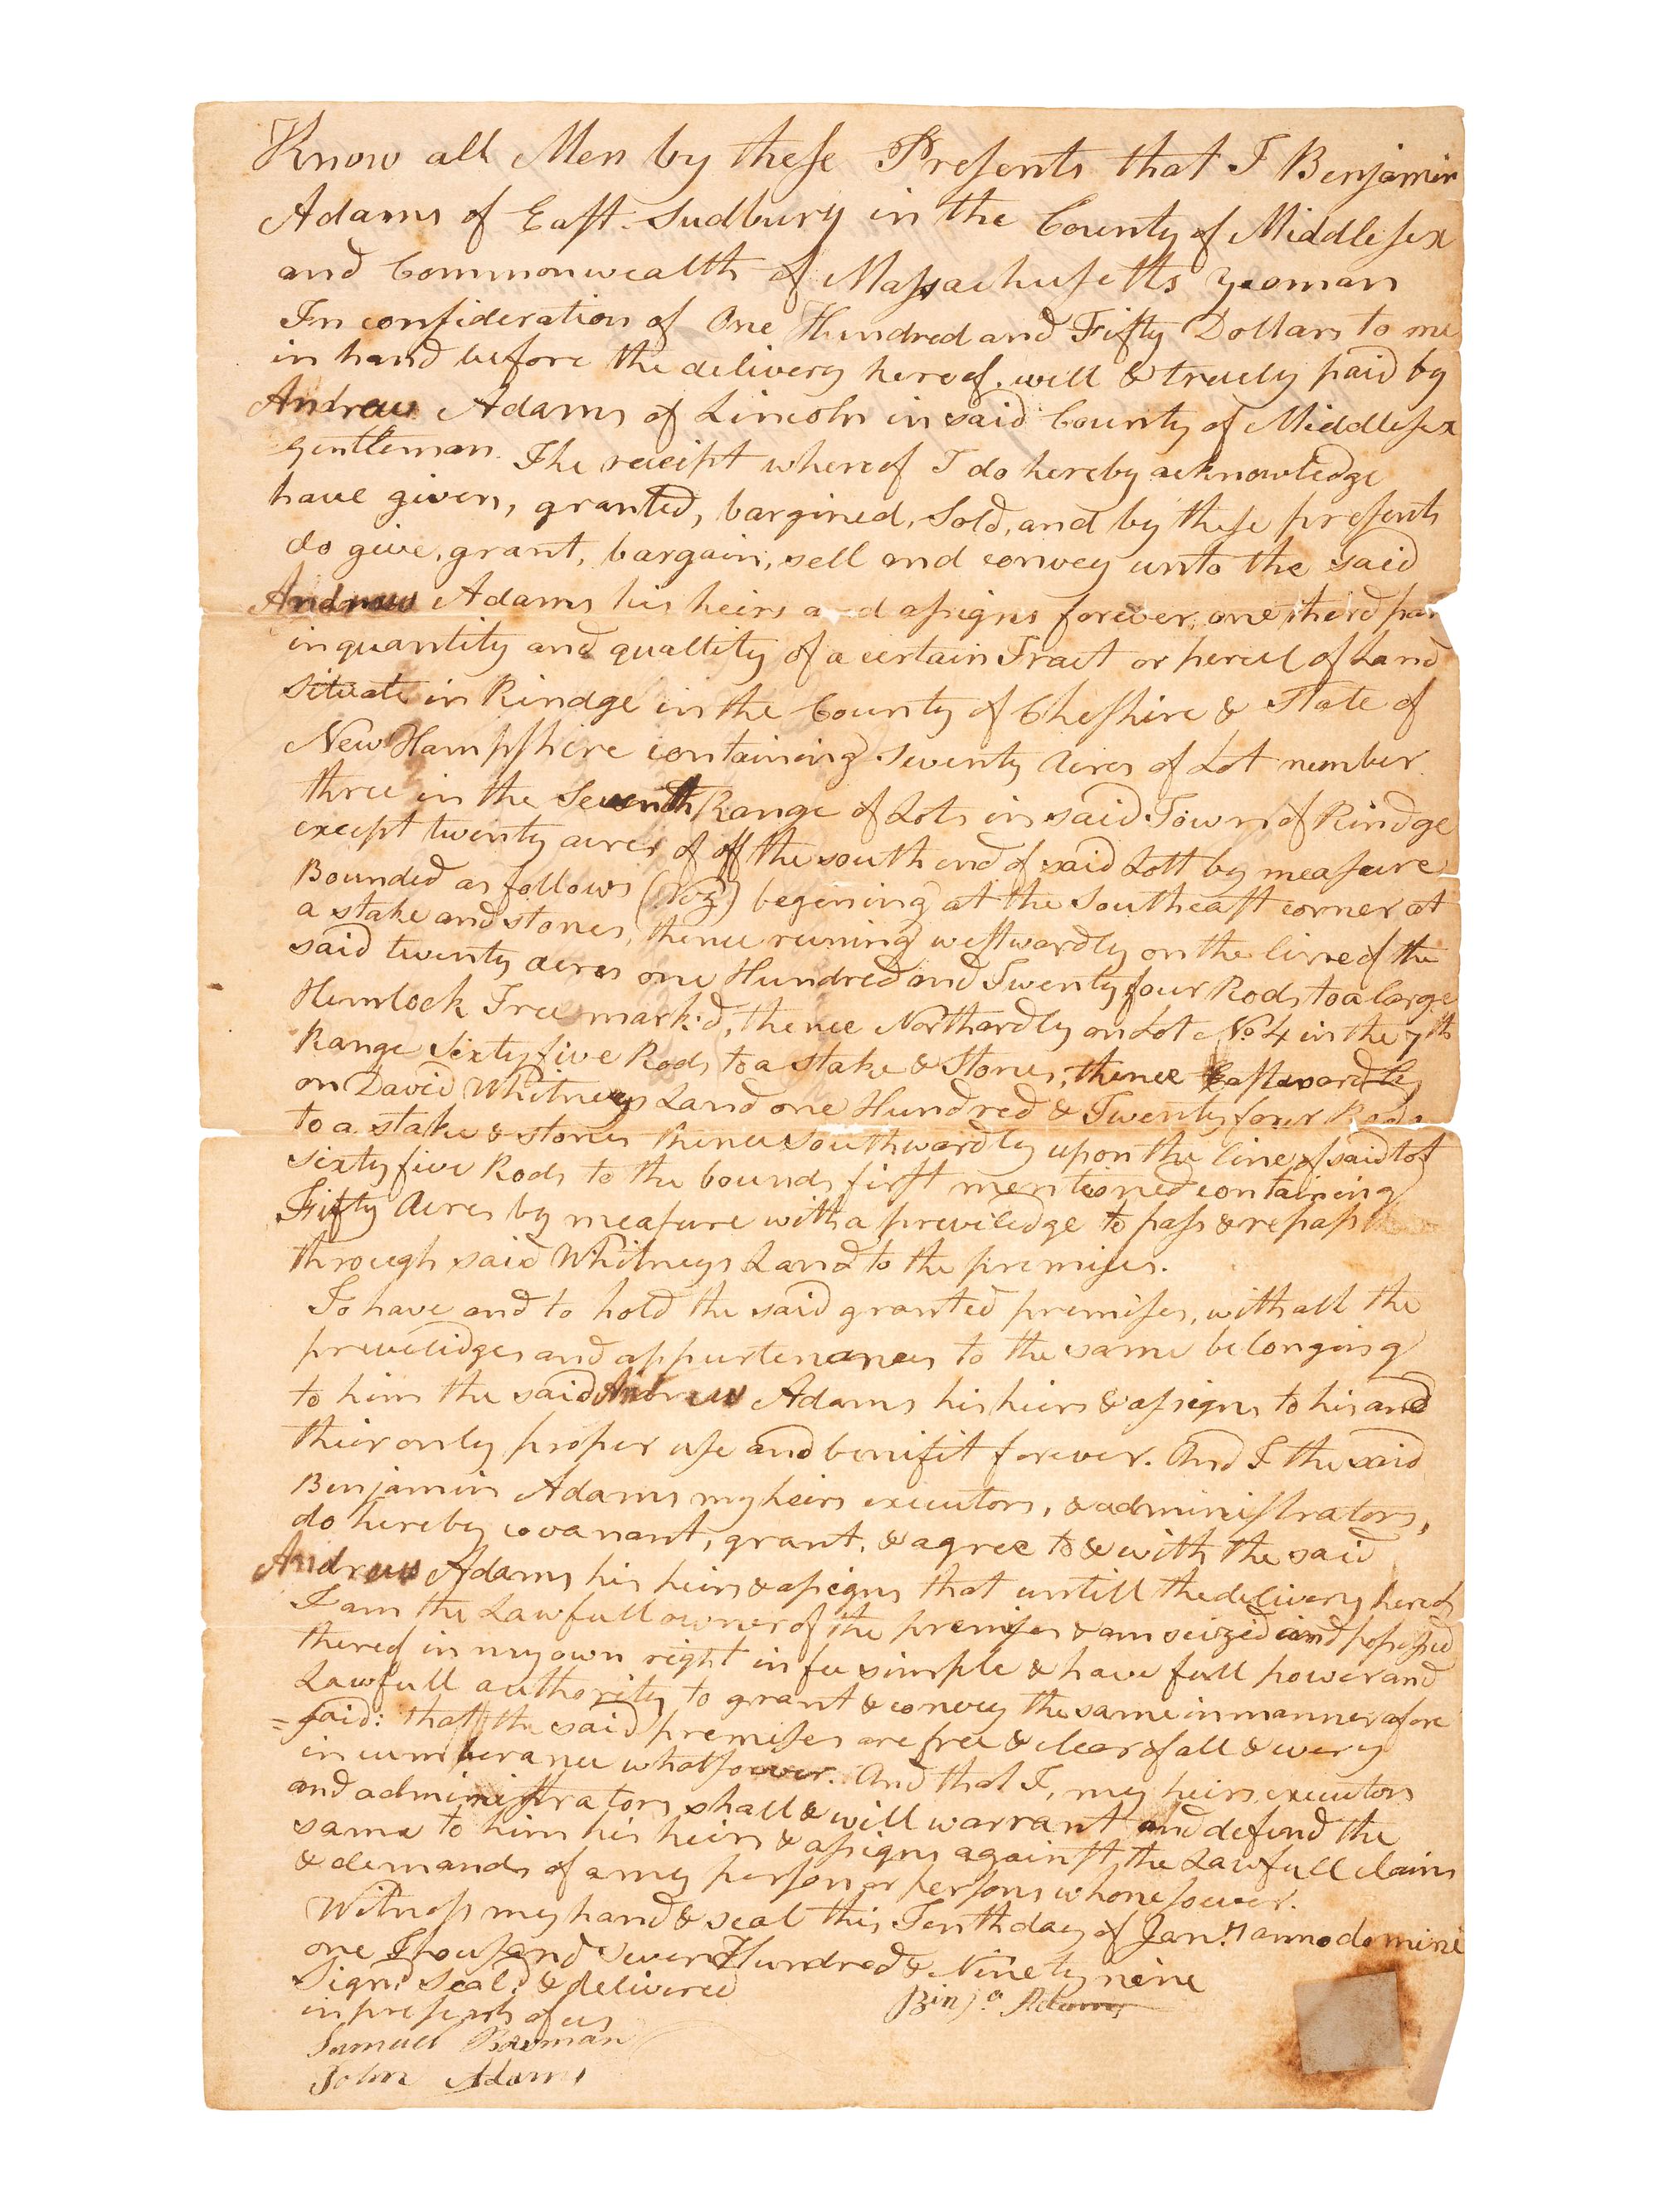 Know all Men by theſe Preſents that I Benjamin
Adams of Eaſt Sudbury in the County of Middleſex
and Commonwealth of Maſsachuſetts yeoman
In conſideration of One Hundred and Fifty Dollars to me
in hand before the delivery hereof, well & truely paid by
Andrew Adams of Lincoln in said County of Middleſex
gentleman. The receipt whereof I do hereby acknowledge
have given, granted, bargined, Sold, and by theſe preſents
do give, grant, bargain, sell and convey unto the said
Andrew Adams his heirs a d aſsigns forever, one third par
in quantity and quallity of a certain Tract or percel of Land
Situate in Rindge in the County of Cheſhire & State of
New Hampſhire containing Seventy Acres of Lot number
three in the Seventh Range of Lots in said Town of Rindge
except twenty acres of off the south end of said Lott by meaſure
Bounded as follows (Viz) begining at the Southeaſt corner at
a stake and stones, thence runing weſtwardly on the line of the
said twenty acres one Hundred and Twenty four Rods to a large
Hemlock Tree mark'd, thence Northardly on Lot No. 4 in the 7th
Range Sixty five Rods to a stake & Stones, thence Eaſtwardly
on David Whitneys Land one Hundred & Twenty four Rods
to a stake & stones thence Southwardly upon the line of said Lot
sixty five Rods to the bounds firſt mentioned containing
Fifty Acres by meaſure with a previledge to paſs & repaſs
through said Whitneys Land to the premiſes.
To have and to hold the said granted premiſes, with all the
previlidges and appurtenances to the same belonging
to him the said Andrew Adams his heirs & aſsigns to his and
their only proper uſe and benifit forever. And I the said
Benjamin Adams my heirs executors, & adminiſtrators,
do hereby covanant, grant, & agree to & with the said
Andrew Adams his heirs & aſsigns that untill the delivery hereof
I am the Lawfull owner of the premiſes & am seized and poſseſsed
thereof in my own right in fee simple & have full power and
Lawfull authority to grant & convey the same in manner afore
=ſaid: that the said premiſes are free & clear of all & every
incumberance whatſoever. And that I, my heirs executors
and adminiſtrators shall & will warrant and defend the
same to him his heirs & aſsigns againſt the Lawfull claims
& demands of any perſon or perſons whomeſoever.
Witneſs my hand & seal this Tenth day of Jan.y anno domini
one Thouſand Seven Hundred & Ninety nine
Sign'd Seal'd & delivered
Benja Adams
in preſents of us
Samuel Bowman
John Adams